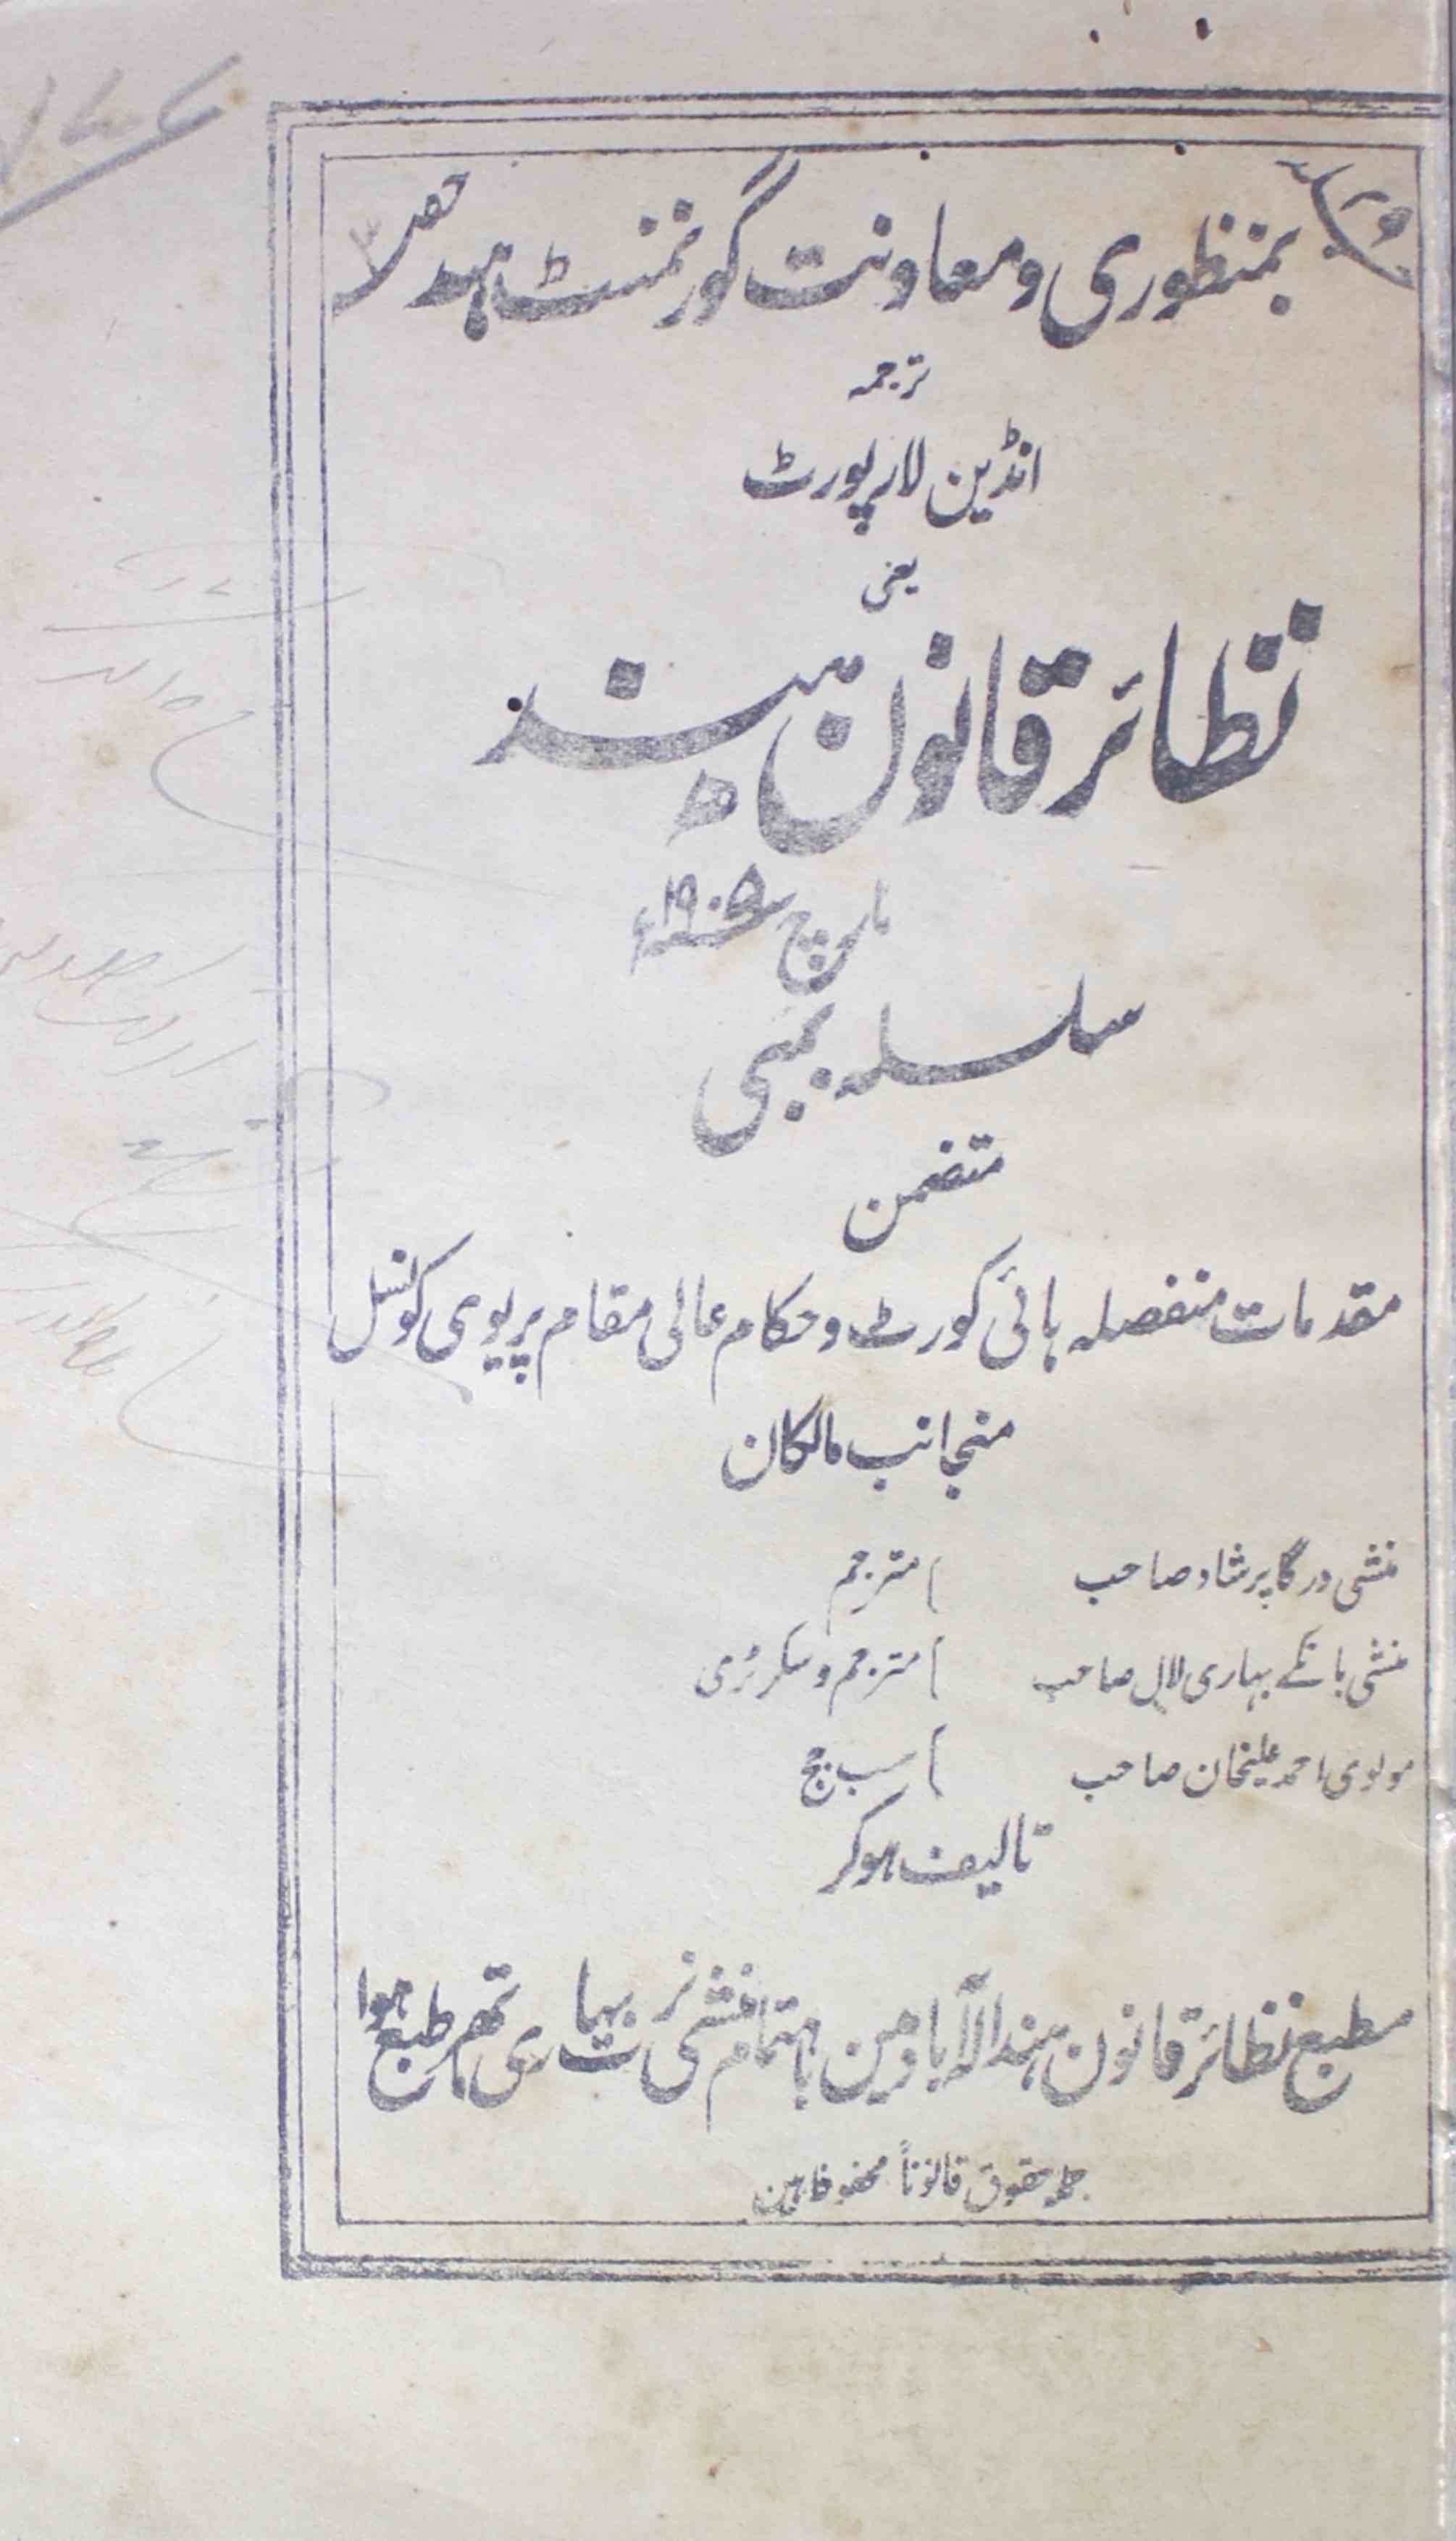 بمنظوری و معاونت گورنمنٹ ہند حصہ
ترجمہ
انڈین لارپورٹ
یعنی
نظائر قانون ہند
مارچ سنہ ۱۹۰۵ء
سلسلہ بمبئی
متضمن
مقدمات منفصلہ ہائی کورٹ و حکام عالی مقام پریوی کونسل
منجانب مالکان
منشی درگا پرشاد صاحب } مترجم
منشی بانکے بہاری لال صاحب } مترجم و سکرٹری
مولوی احمد علیخان صاحب } سب جج
تالیف ہوکر
مطبع نظائر قانون ہند الہ آباد مین باہتمام منشی بہاری طبع ہوا
جملہ حقوق قانوناً محفوظ ہین